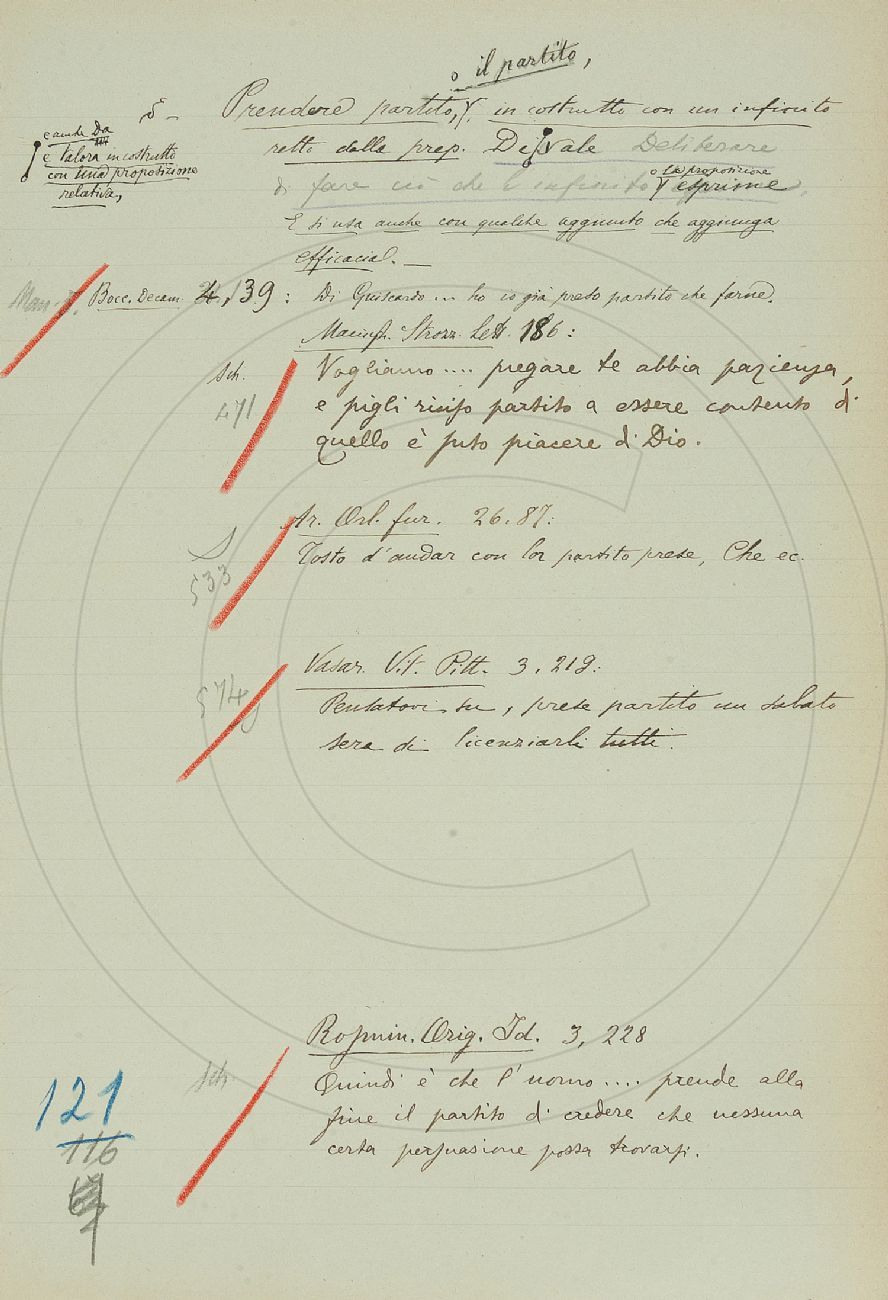 o il partito,
§ – Prendere partito, in costrutto con un infinito
e anche Da
e talora in costrutto
con una proposizione
relativa,
retto dalla prep. Di, vale Deliberare
di fare ciò che l'infinito o la proposizione esprime.
E si usa anche con qualche aggiunto che aggiunga
efficacia. —
Bocc. Decam. 4, 39: Di Guiscardo ... ho io già preso partito che farne.
Macingh. Strozz. Lett. 186:
Sch. Vogliamo .... pregare te abbia pazienza,
471 e pigli risiso partito a essere contento di
quello è suto piacere di Dio.
Ar. Orl. fur. 26. 87:
533 Tosto d'andar con lor partito prese, Che ec.
Vasar. Vit. Pitt. 3. 219:
574 Pensatovi su, prese partito un sabato
sera di licenziarli tutti.
Rosmin. Orig. Id. 3, 228
Sch Quindi è che l'uomo .... prende alla
fine il partito di credere che nessuna
certa persuasione possa trovarsi.
121
116